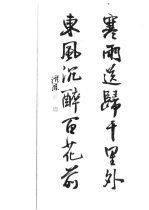 寒雨送歸千里外
東風沉醉百花前